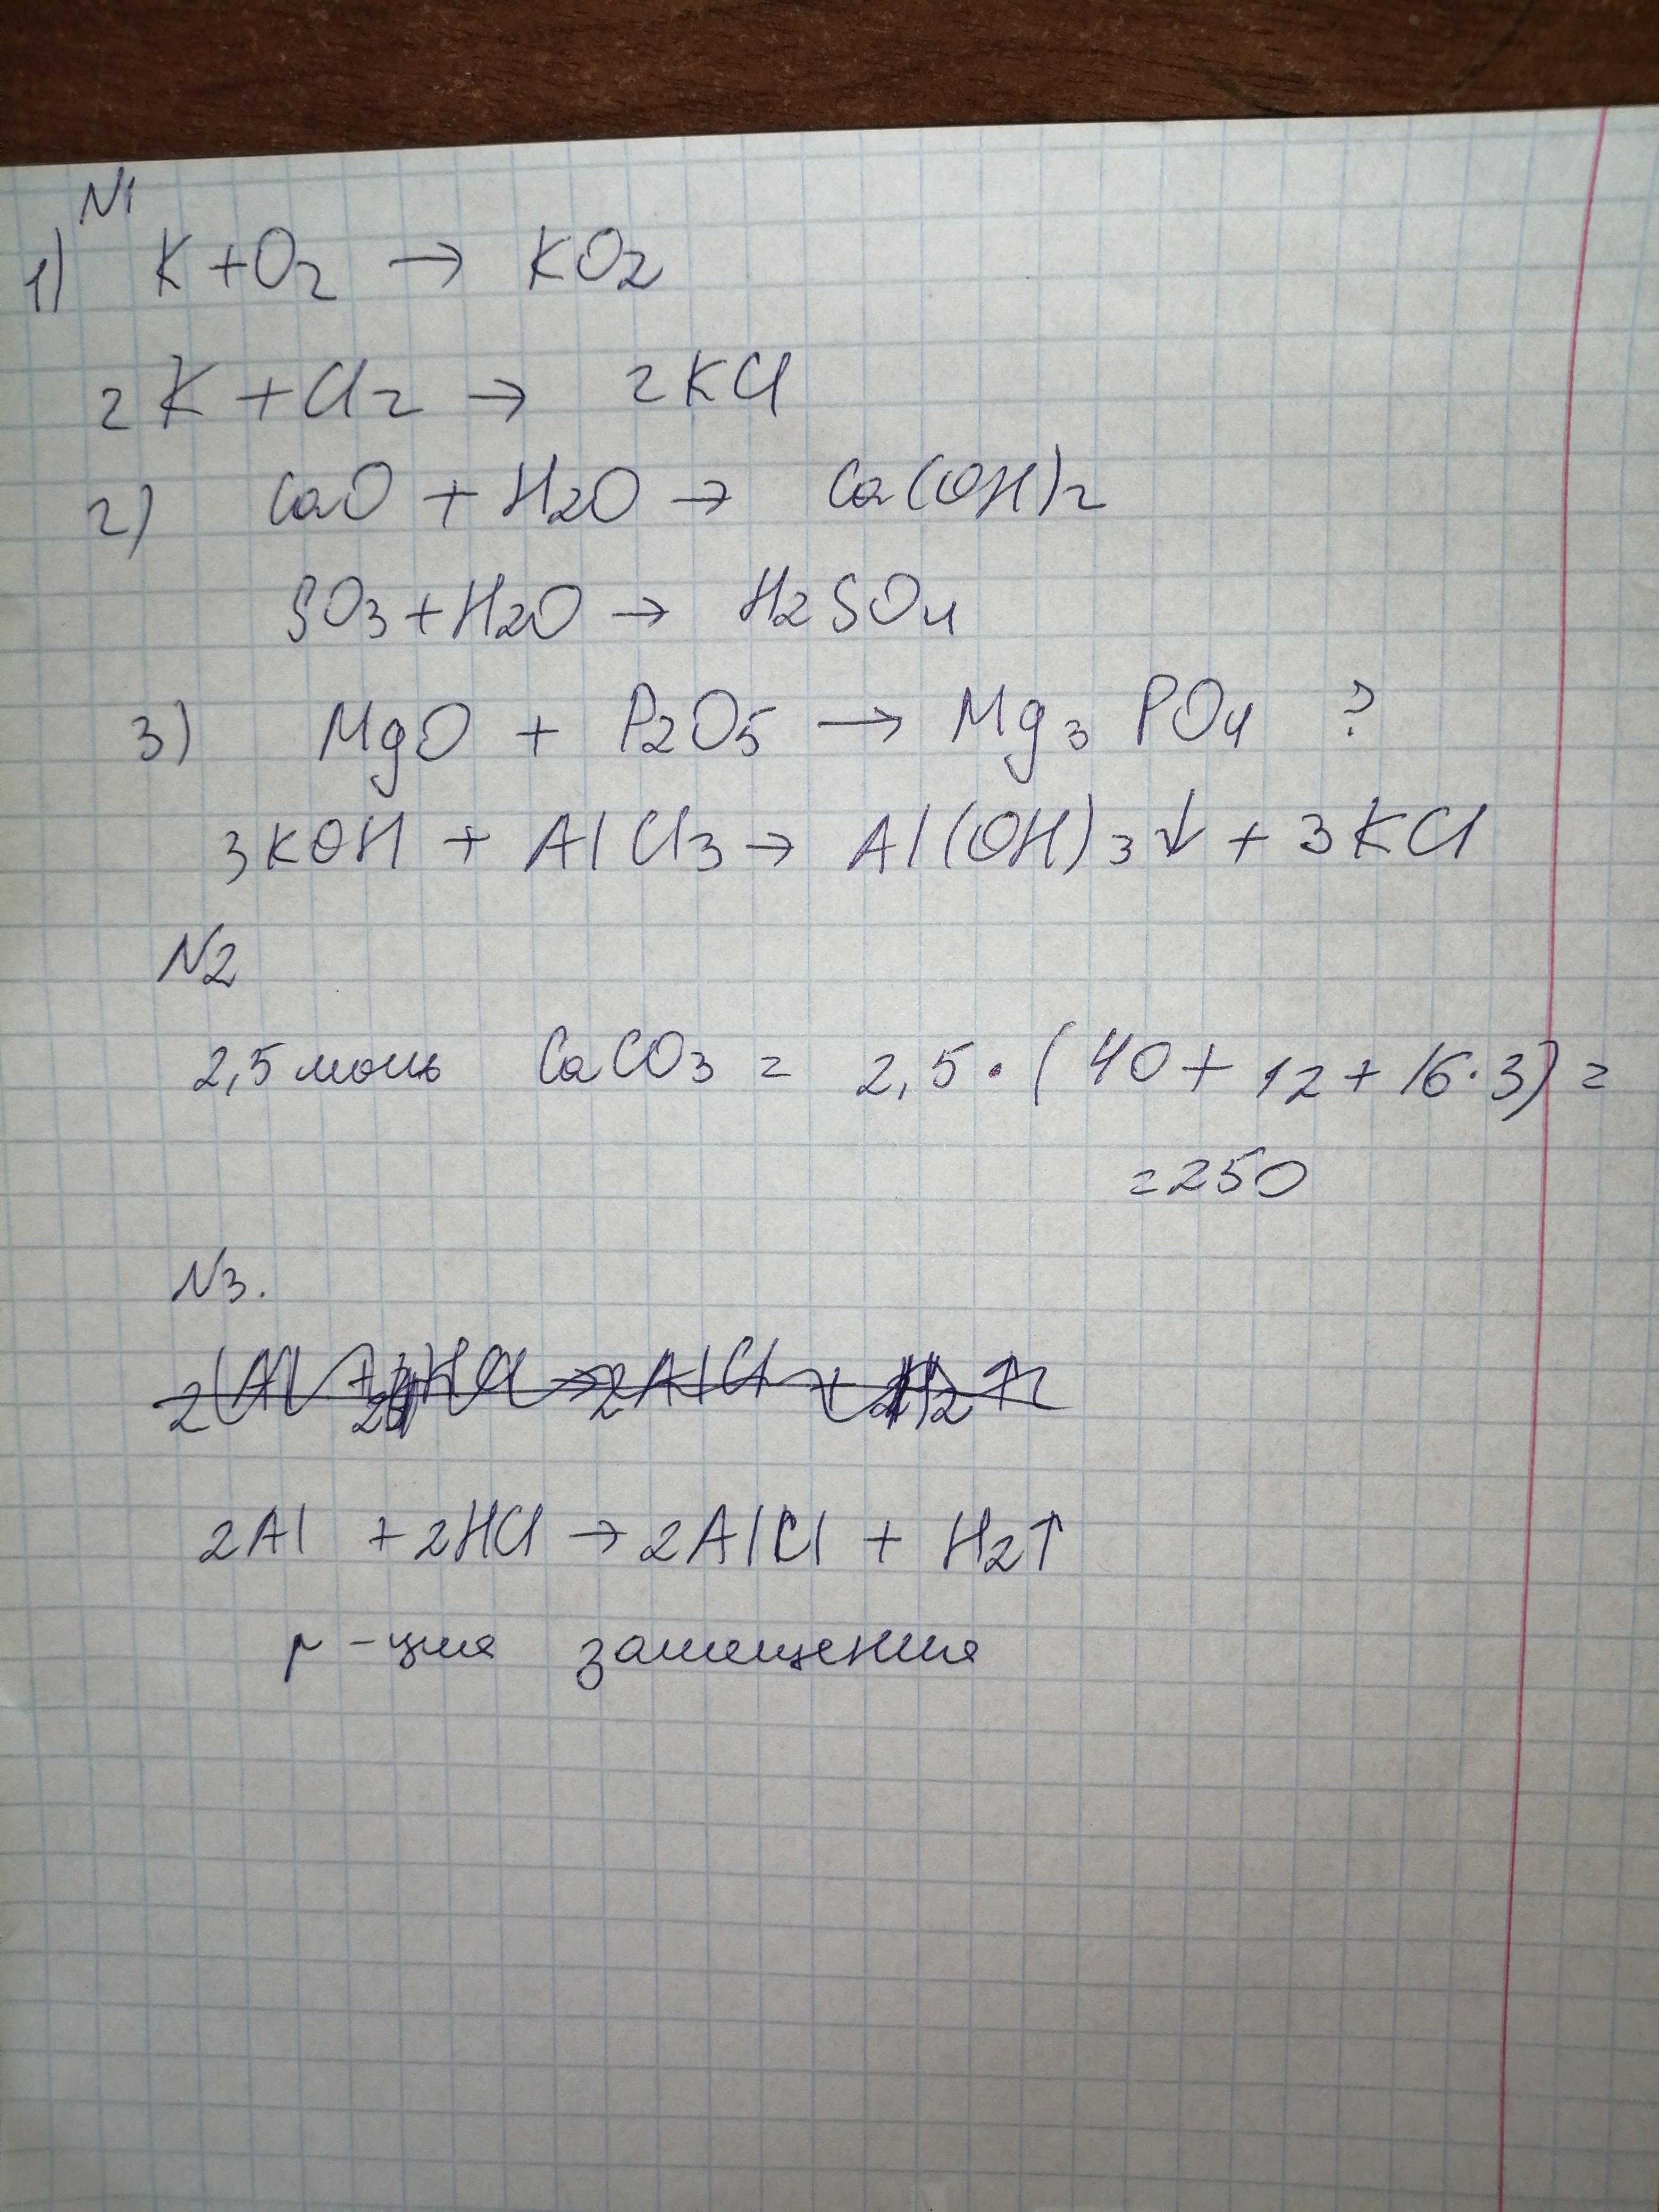 N1
1) K + O2 → KO2
2K + Cl2 → 2KCl
2) CaO + H2O → Ca(OH)2
SO3 + H2O → H2SO4
3) MgO + P2O5 → Mg3 PO4 ?
3KOH + AlCl3 → Al(OH)3↓ + 3KCl
N2
2,5 моль CaCO3 = 2,5 · (40 + 12 + 16·3) =
= 250
N3.
2Al + 2HCl → 2AlCl + H2↑
р-ция замещения